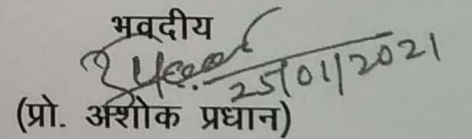 भवदीय
25/01/2021
(प्रो. अशोक प्रधान)